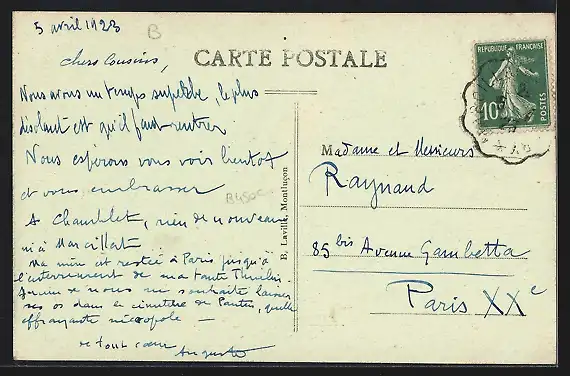 5 avril 1923
B
CARTE POSTALE
chers Cousins,
Nous avons un temps superbe, le plus
désolant est qu'il faut rentrer
Nous espérons vous voir bientot
et vous embrasser
A Chamblet, rien de nouveau
ni à Marcillat...
Ma mère est restée à Paris jusqu'à
l'enterrement de ma tante
de nous ne souhaite laisser
ses os dans le cimetière de Pantin, quelle
effrayante nécropole —
de tout cœur
Auguste
B450C
B, Laville, Montluçon
REPUBLIQUE FRANÇAISE
10
POSTES
Madame et Messieurs
Raynaud
85 bis Avenue Gambetta
Paris XXe